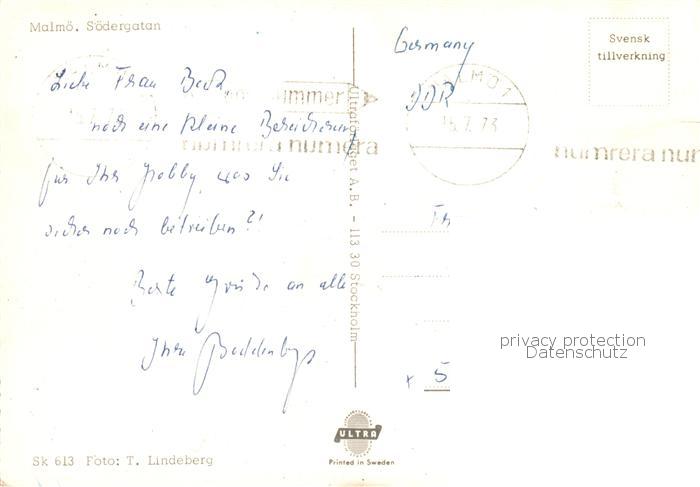 Malmö. Södergatan
Liebe Frau Beck
noch eine kleine Bereicherung
für Ihr Hobby, was Sie
sicher noch betreiben?!
Beste Grüße an alle
Ihre
Sk 613 Foto: T. Lindeberg
Ultraförlaget A.B. - 113 30 Stockholm
ULTRA
Printed in Sweden
Germany
DDR
MALMÖ 1
16.7.73
nummer
numrera numera
numrera nur
Svensk
tillverkning
Fr
x 5
privacy protection
Datenschutz